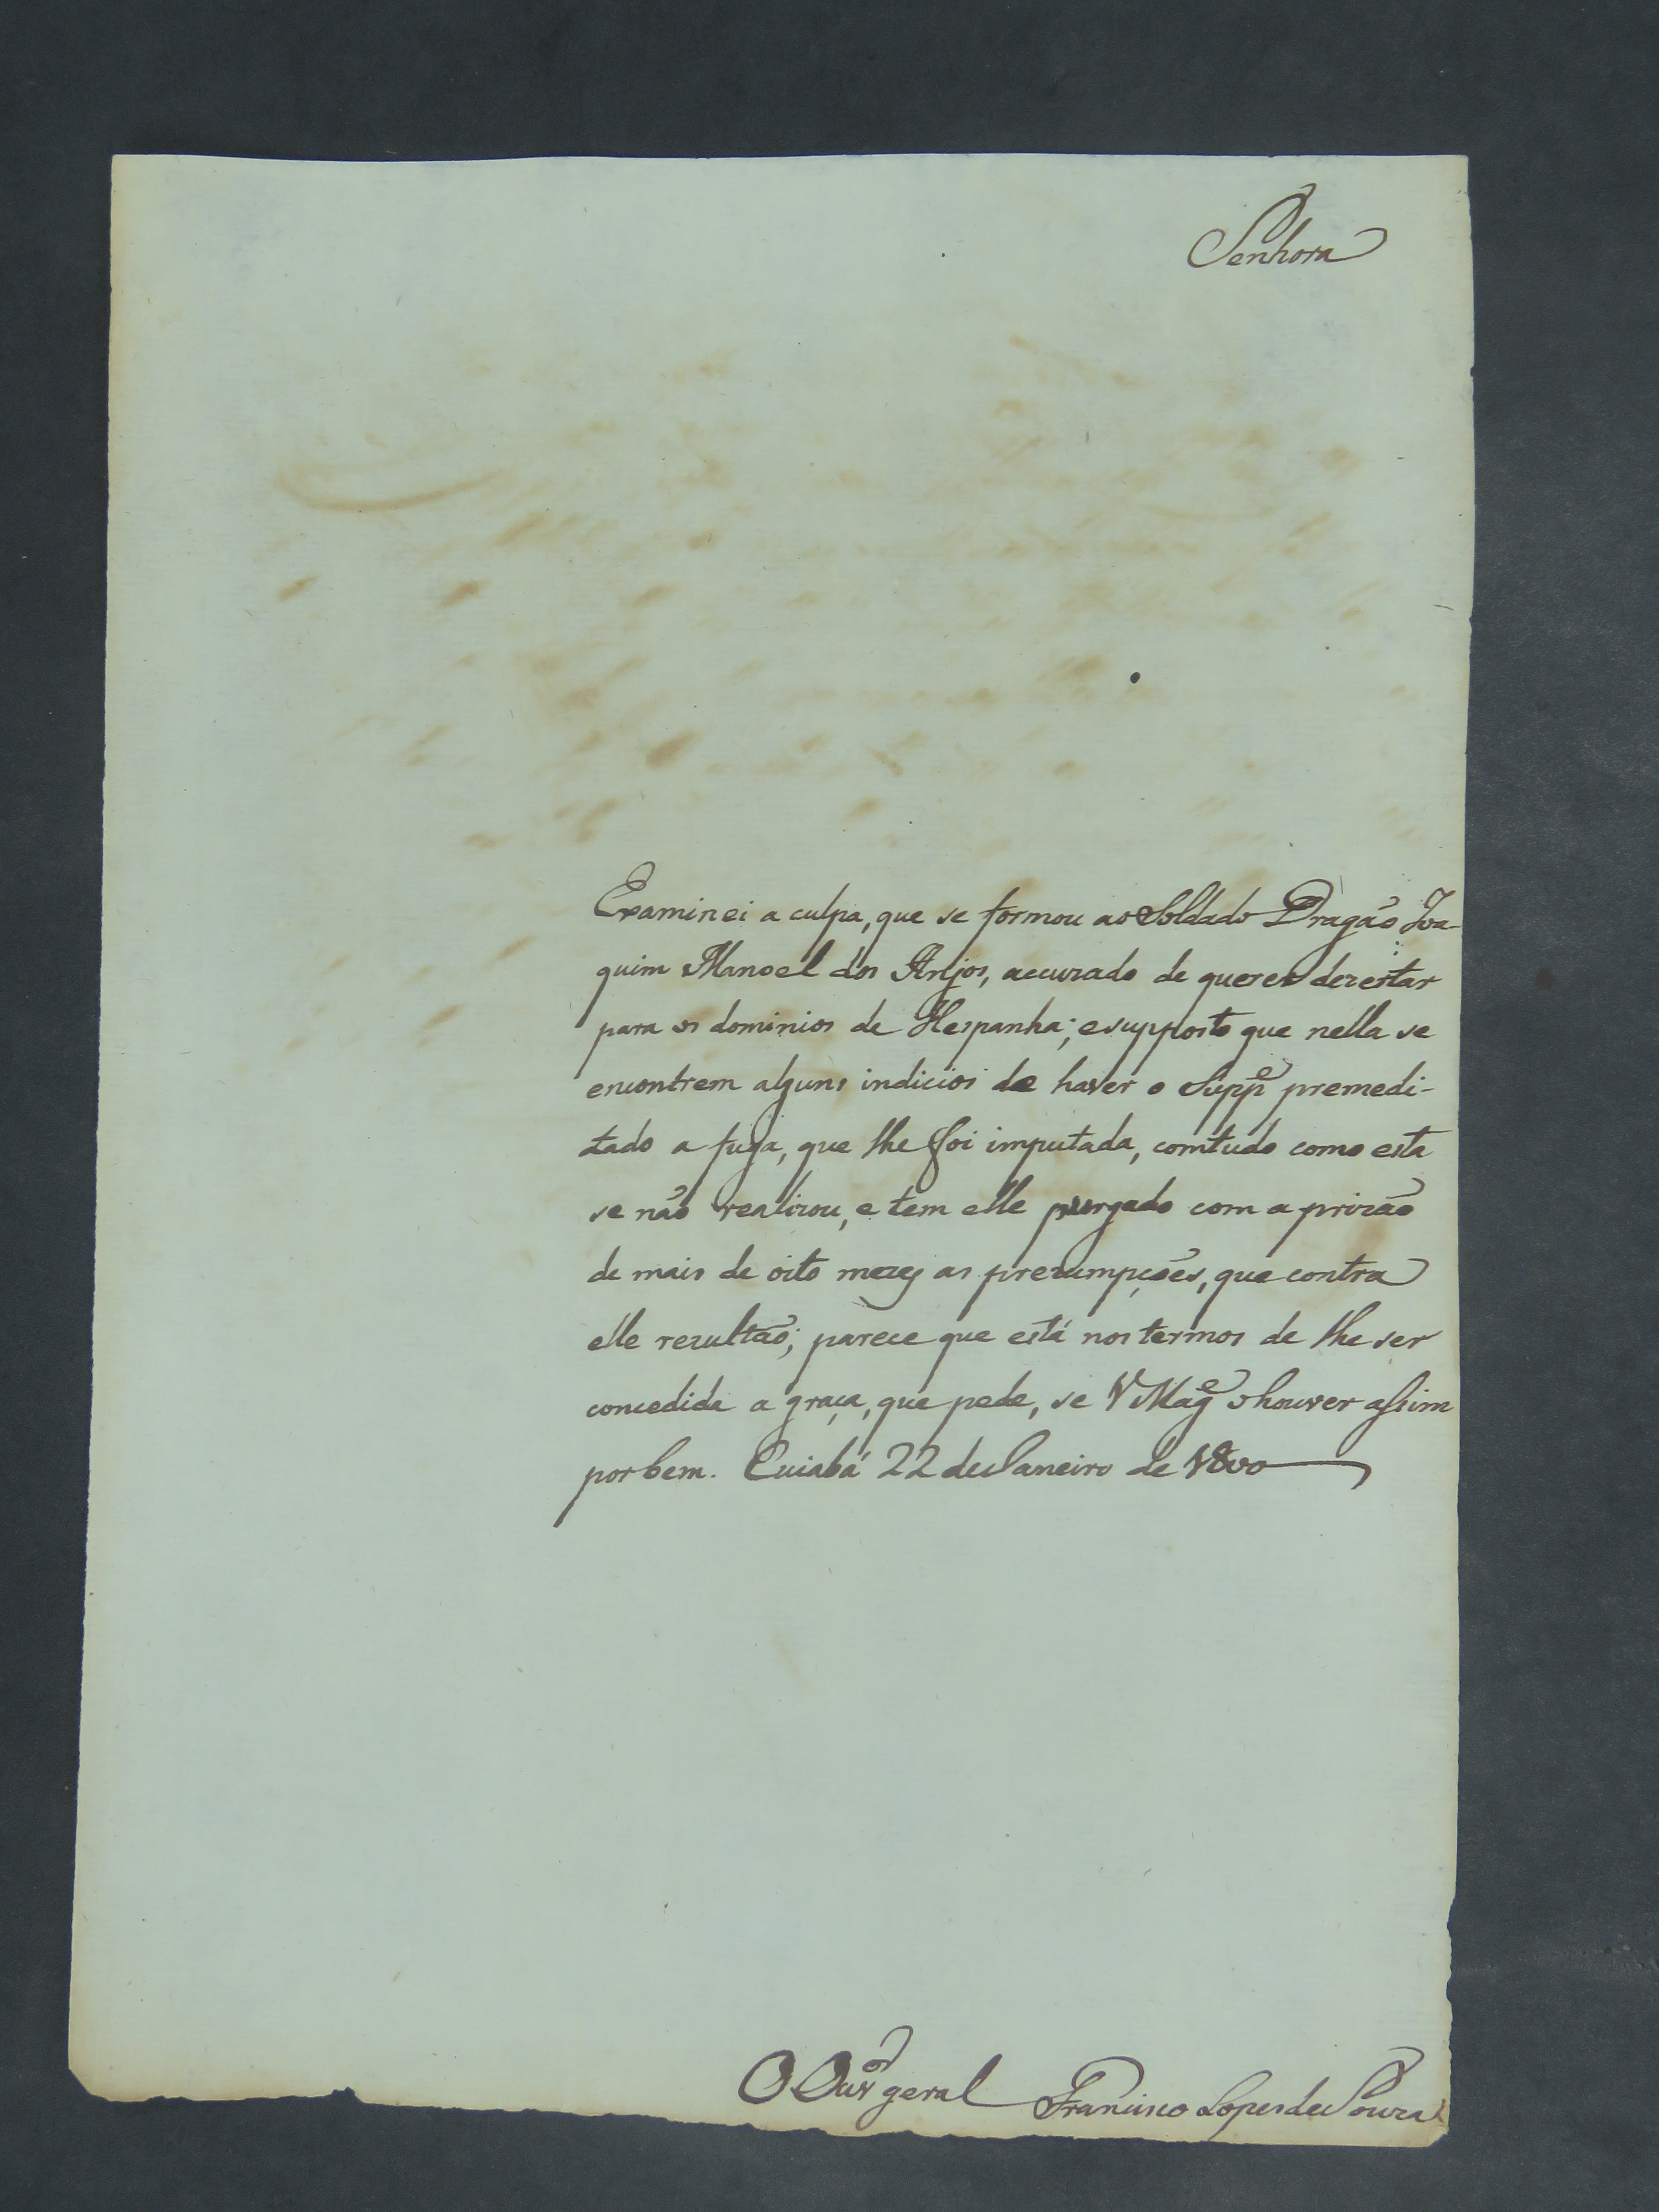 Senhora
Examinei a culpa, que se formou ao Soldado Dragão Joa-
quim Manoel dos Anjos, accuzado de querer dezertar
para os dominios de Hespanha; e supposto que nella se
encontrem alguns indicios de haver o Suppe premedi-
tado a fuga, que lhe foi imputada, comtudo como esta
se não realizou, e tem elle purgado com a prizão
de mais de oito mezes as prezumpções, que contra
elle rezultão; parece que está nos termos de lhe ser
concedida a graça, que pede, se V Mage o houver assim
por bem. Cuiabá 22 de Janeiro de 1800
O Ouvor geral Francisco Lopes de Souza